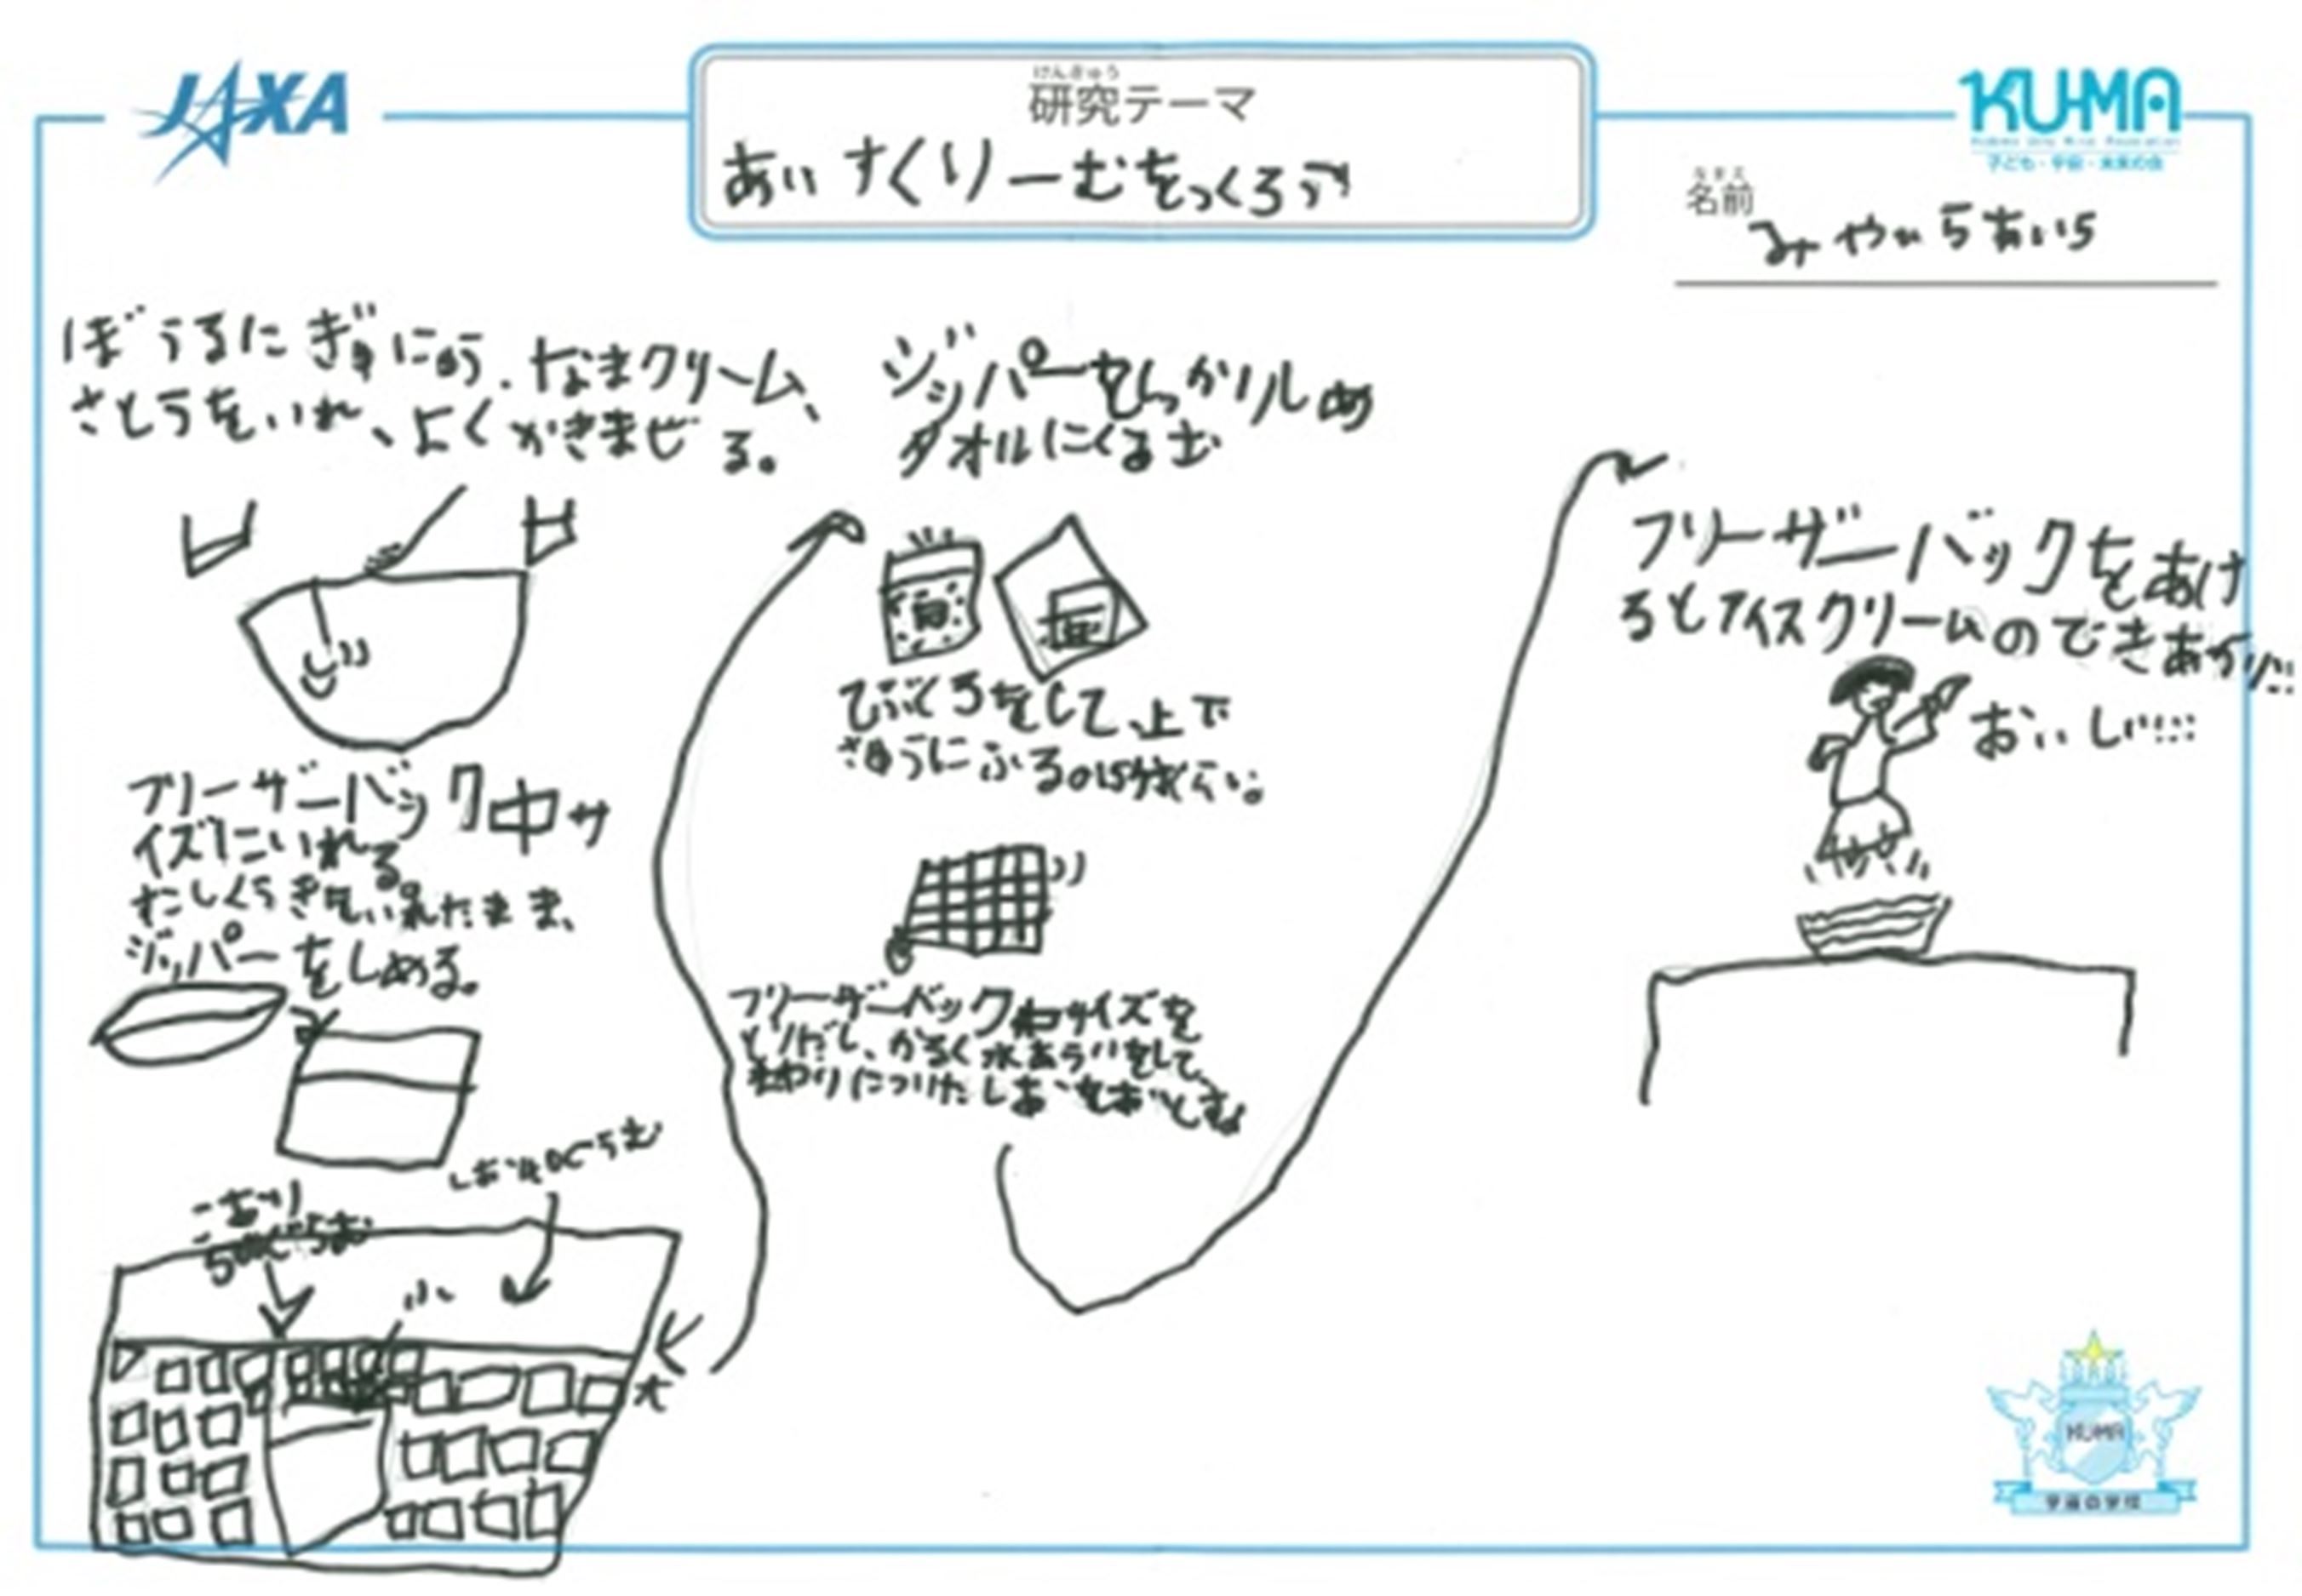 JAXA
けんきゅう
研究テーマ
あいすくりーむをつくろう
KUMA
子ども・宇宙・未来の会
なまえ
名前
ぼうるにぎゅにゅう、なまクリーム、
さとうをいれ、よくかきまぜる。
フリーザーバック中サ
イズにいれる。
すこしくうきをいれたまま、
ジッパーをしめる。
こおり
大
ジッパーをしっかりしめ
タオルにくるむ
てぶくろをして、上下
さゆうにふる。15分くらい。
フリーザーバック中サイズを
とりだし、かるく水あらいをして、
まわりについたしおをおとす。
フリーザーバックをあけ
るとアイスクリームのできあがり!!
おいしい!!!
KUMA
宇宙の学校